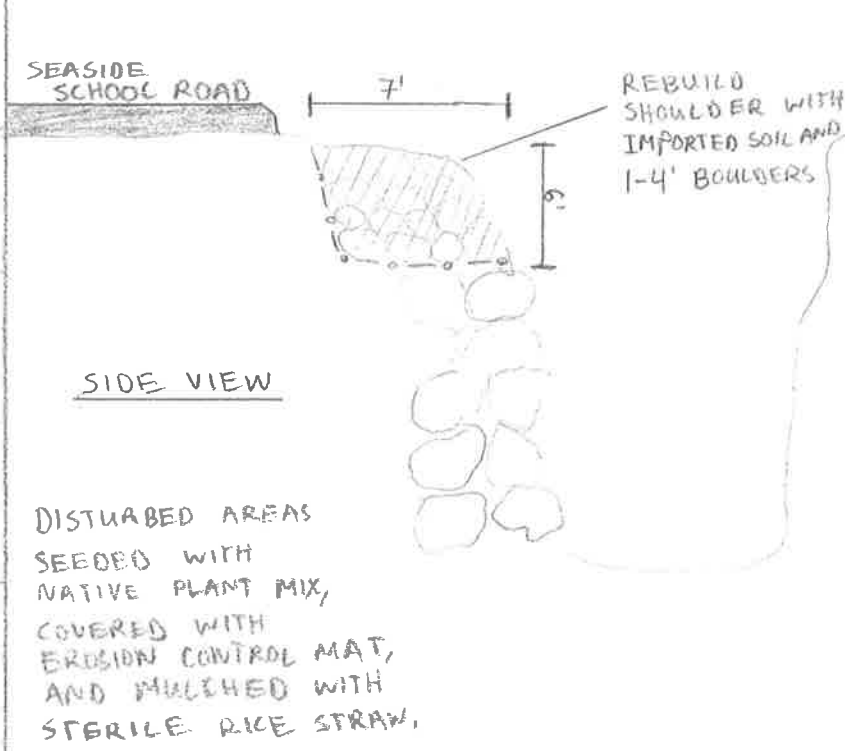 SEASIDE
SCHOOL ROAD
7'
REBUILD
SHOULDER WITH
IMPORTED SOIL AND
1-4' BOULDERS
6'
SIDE VIEW
DISTURBED AREAS
SEEDED WITH
NATIVE PLANT MIX,
COVERED WITH
EROSION CONTROL MAT,
AND MULCHED WITH
STERILE RICE STRAW.